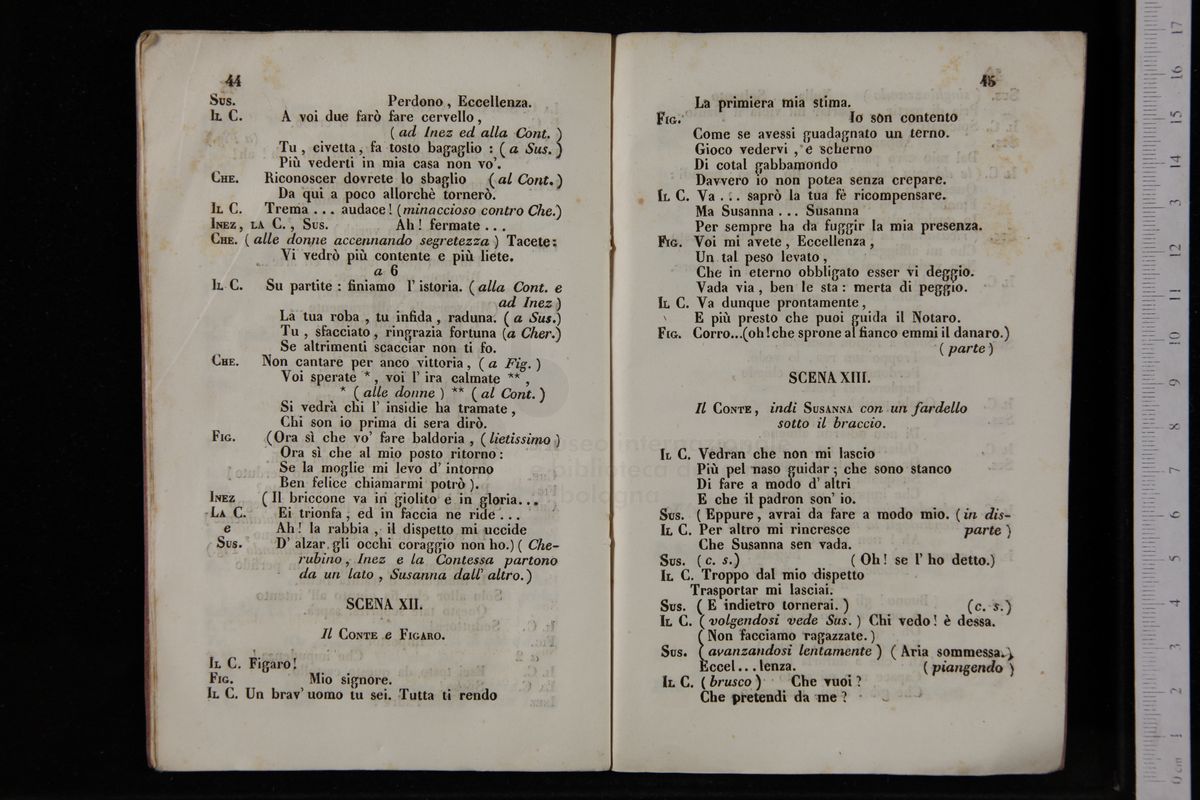 44
Sus. Perdono, Eccellenza.
Il C. A voi due farò fare cervello,
(ad Inez ed alla Cont.)
Tu, civetta, fa tosto bagaglio: (a Sus.)
Più vederti in mia casa non vo'.
Che. Riconoscer dovrete lo sbaglio (al Cont.)
Da qui a poco allorchè tornerò.
Il C. Trema... audace! (minaccioso contro Che.)
Inez, la C., Sus. Ah! fermate...
Che. (alle donne accennando segretezza) Tacete:
Vi vedrò più contente e più liete.
a 6
Il C. Su partite: finiamo l'istoria. (alla Cont. e
ad Inez)
La tua roba, tu infida, raduna. (a Sus.)
Tu, sfacciato, ringrazia fortuna (a Cher.)
Se altrimenti scacciar non ti fo.
Che. Non cantare per anco vittoria, (a Fig.)
Voi sperate *, voi l'ira calmate **,
* (alle donne) ** (al Cont.)
Si vedrà chi l'insidie ha tramate,
Chi son io prima di sera dirò.
Fig. (Ora sì che vo' fare baldoria, (lietissimo)
Ora sì che al mio posto ritorno:
Se la moglie mi levo d'intorno
Ben felice chiamarmi potrò).
Inez (Il briccone va in giolito e in gloria...
La C. Ei trionfa, ed in faccia ne ride...
e Ah! la rabbia, il dispetto mi uccide
Sus. D'alzar gli occhi coraggio non ho.) (Che-
rubino, Inez e la Contessa partono
da un lato, Susanna dall'altro.)
SCENA XII.
Il Conte e Figaro.
Il C. Figaro!
Fig. Mio signore.
Il C. Un brav'uomo tu sei. Tutta ti rendo
45
La primiera mia stima.
Fig. Io son contento
Come se avessi guadagnato un terno.
Gioco vedervi, e scherno
Di cotal gabbamondo
Davvero io non potea senza crepare.
Il C. Va... saprò la tua fè ricompensare.
Ma Susanna... Susanna
Per sempre ha da fuggir la mia presenza.
Fig. Voi mi avete, Eccellenza,
Un tal peso levato,
Che in eterno obbligato esser vi deggio.
Vada via, ben le sta: merta di peggio.
Il C. Va dunque prontamente,
E più presto che puoi guida il Notaro.
Fig. Corro...(oh! che sprone al fianco emmi il danaro.)
(parte)
SCENA XIII.
Il Conte, indi Susanna con un fardello
sotto il braccio.
Il C. Vedran che non mi lascio
Più pel naso guidar; che sono stanco
Di fare a modo d'altri
E che il padron son'io.
Sus. (Eppure, avrai da fare a modo mio. (in dis-
Il C. Per altro mi rincresce parte)
Che Susanna sen vada.
Sus. (c. s.) (Oh! se l'ho detto.)
Il C. Troppo dal mio dispetto
Trasportar mi lasciai.
Sus. (E indietro tornerai.) (c. s.)
Il C. (volgendosi vede Sus.) Chi vedo! è dessa.
(Non facciamo ragazzate.)
Sus. (avanzandosi lentamente) (Aria sommessa.)
Eccel...lenza. (piangendo)
Il C. (brusco) Che vuoi?
Che pretendi da me?